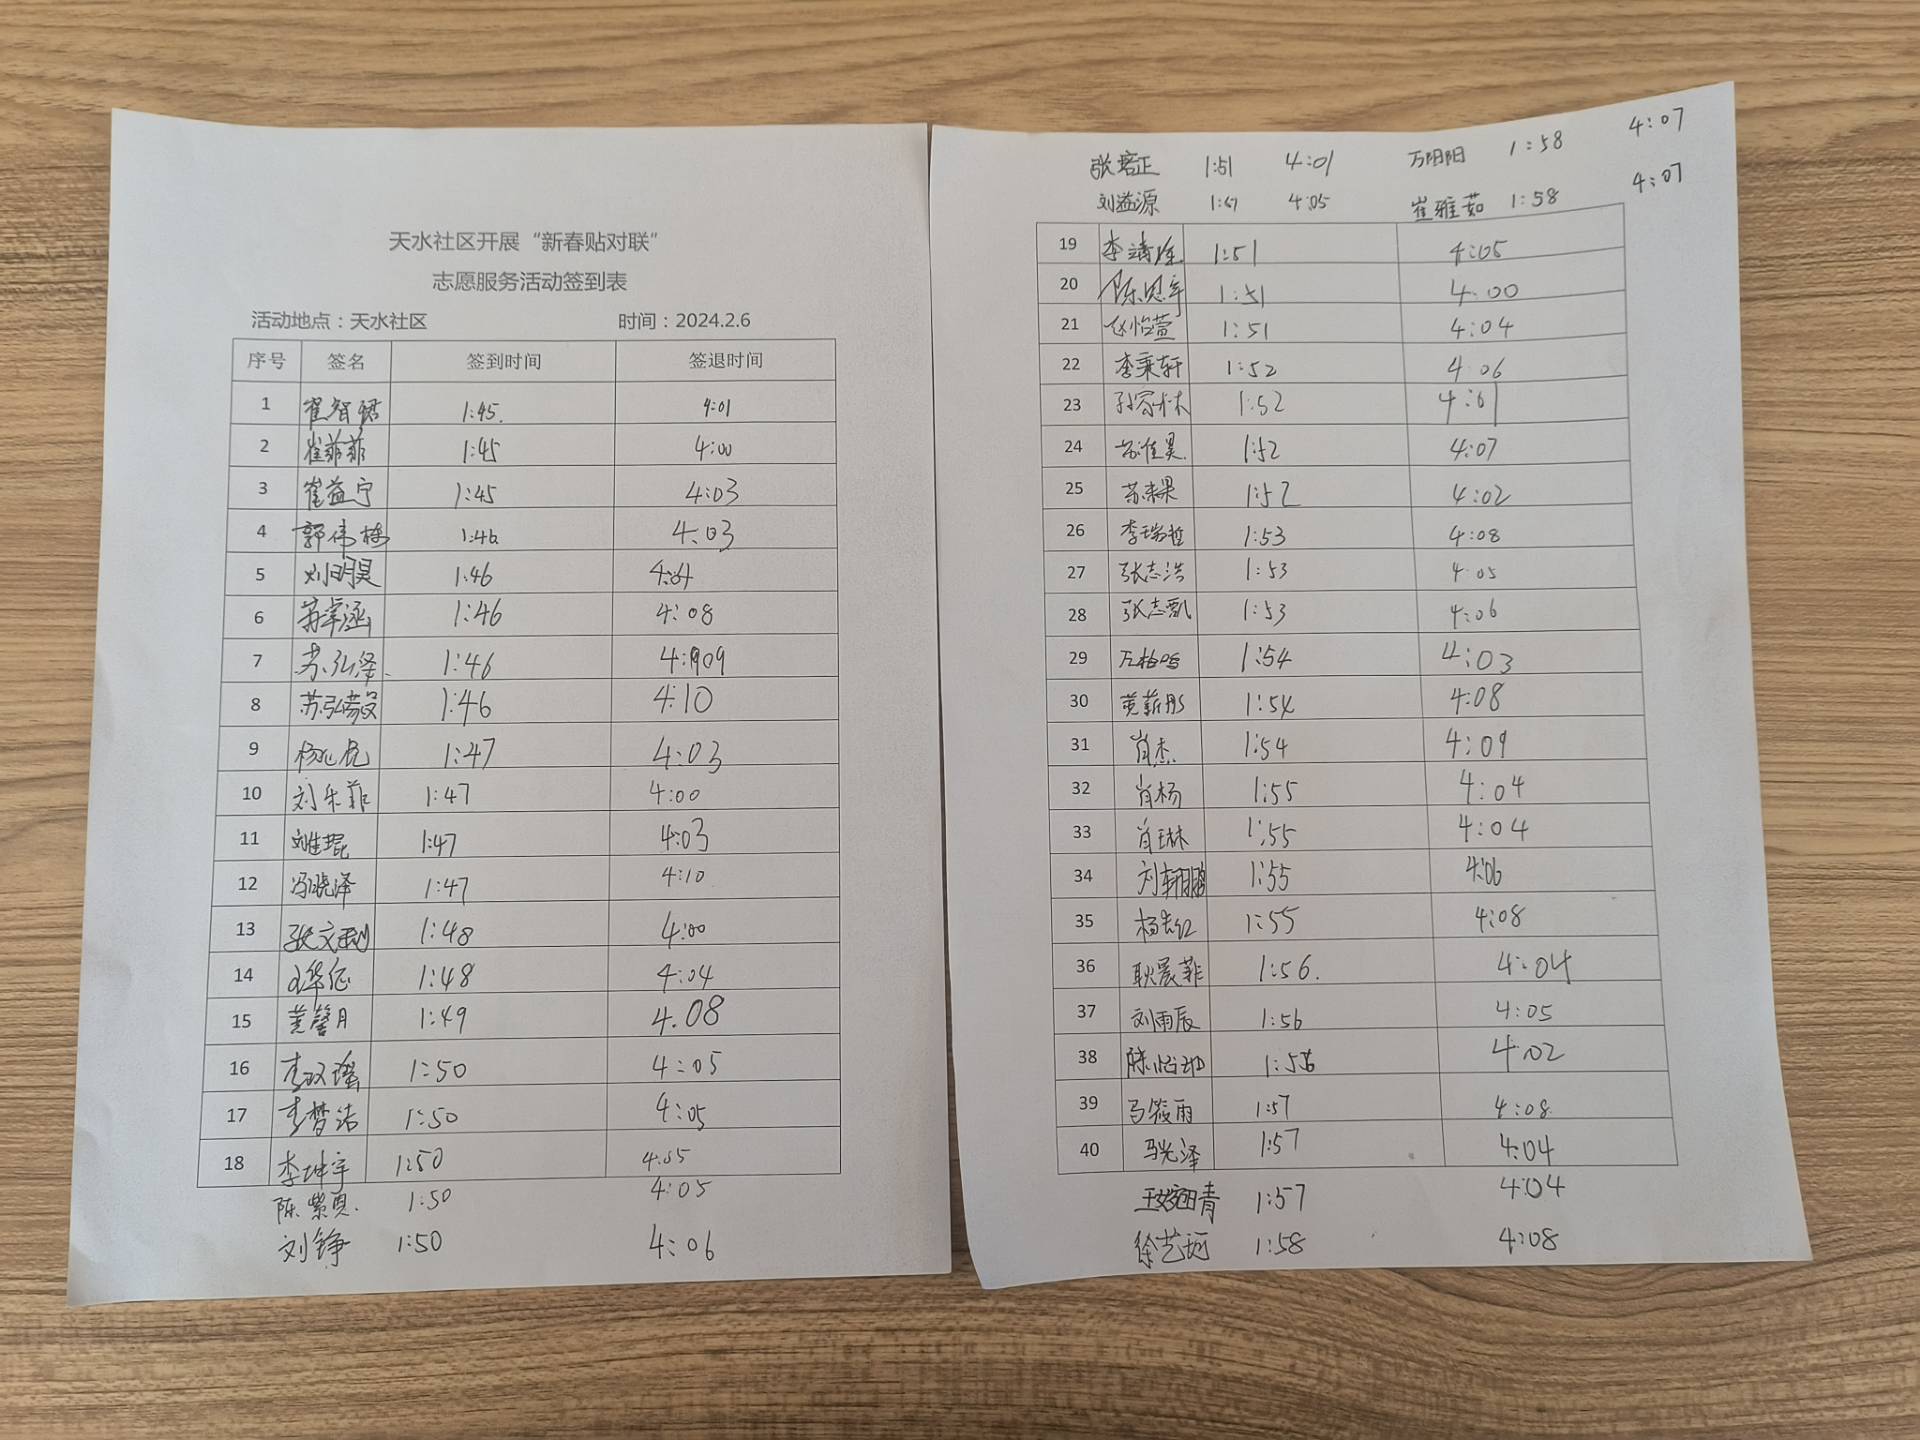 天水社区开展“新春贴对联”
志愿服务活动签到表
活动地点：天水社区 时间：2024.2.6
序号 签名 签到时间 签退时间
1 崔智 1:45. 4:01
2 崔菲菲 1:45 4:00
3 崔益宁 1:45 4:03
4 郭伟 1:46 4:03
5 刘明昊 1:46
6 苏 涵 1:46 4:08
7 苏弘泽. 1:46
8 苏弘毅 1:46 4:10
9 杨 虎 1:47 4:03
10 刘 菲 1:47 4:00
11 刘 琨 1:47 4:03
12 冯晓泽 1:47 4:10
13 张文 1:48 4:00
14 1:48 4:04
15 黄馨月 1:49 4.08
16 李汉瑶 1:50 4:05
17 李梦洁 1:50 4:05
18 李坤宇 1:50 4:05
陈紫 1:50 4:05
刘铮 1:50 4:06
张培正 1:51 4:01 万阳阳 1:58 4:07
刘益源 4:05 崔雅茹 1:58 4:07
19 李 1:51 4:05
20 陈思宇 1:51 4:00
21 赵怡萱 1:51 4:04
22 李秉轩 1:52 4:06
23 孙 林 1:52 4:01
24 苏 昊. 1:52 4:07
25 苏 果 1:52 4:02
26 李瑞哲 1:53 4:08
27 张志浩 1:53 4:05
28 张志凯 1:53 4:06
29 1:54 4:03
30 黄薪彤 1:54 4:08
31 肖杰 1:54 4:09
32 肖杨 1:55 4:04
33 肖琳 1:55 4:04
34 刘 鹏 1:55 4:06
35 杨 红 1:55 4:08
36 耿晨菲 1:56. 4:04
37 刘雨辰 1:56 4:05
38 陈怡 1:56 4:02
39 筱雨 1:57 4:08
40 马光泽 1:57 4:04
王 青 1:57 4:04
徐艺 1:58 4:08